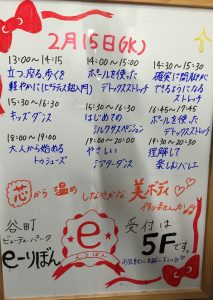 2月15日(水)
13:00〜14:15
立つ、座る、歩くを
軽やかに(ピラティス超入門)
14:00〜15:00
ボールを使った
デトックスストレッチ
14:30〜15:30
確実に開脚が
できるようになる
ストレッチ
15:30〜16:30
キッズダンス
15:30〜16:30
はじめての
シルクサスペンション
16:45〜17:45
ボールを使った
デトックスストレッチ
18:00〜19:00
大人から始める
トゥシューズ
19:00〜20:00
やさしい
シアターダンス
19:30〜20:30
理解して
楽しむバレエ
芯から温め
しなやかな美ボディ
イキませんか
谷町
ビューティーパーク
e-りぼん
e
えりぼん
受付は
5Fです。